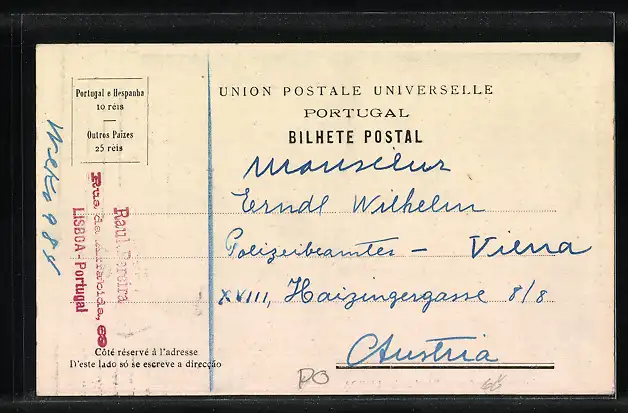 UNION POSTALE UNIVERSELLE
PORTUGAL
BILHETE POSTAL
Portugal e Hespanha
10 réis
Outros Paizes
25 réis
Monsieur
Erndl Wilhelm
Polizeibeamtes - Viena
XVIII, Haizingergasse 8/8
Austria
Raul Pereira
Rua da
LISBOA - Portugal
Côté réservé à l'adresse
D'este lado só se escreve a direcção
PO